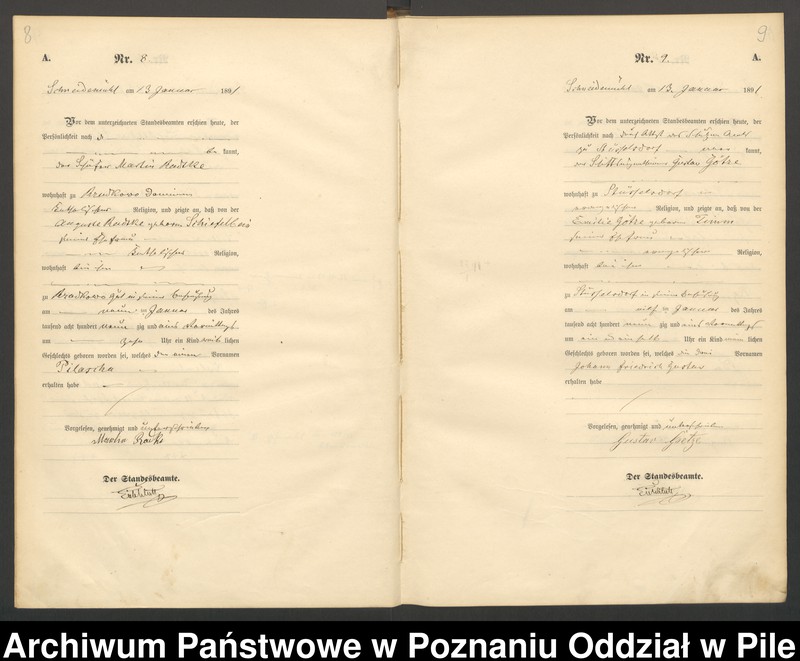 8
A. Nr. 8.
Schneidemühl am 13 Januar 1891
Vor dem unterzeichneten Standesbeamten erschien heute, der
Persönlichkeit nach
be kannt,
der Schäfer Martin Radtke
wohnhaft zu Kradkowo Dominium
katholischer Religion, und zeigte an, daß von der
Auguste Radtke geborene
seiner Ehefrau
katholischer Religion,
wohnhaft bei ihm
zu Kradkowo
am neun ten Januar des Jahres
tausend acht hundert neun zig und eins Vormittags
um zehn Uhr ein Kind weib lichen
Geschlechts geboren worden sei, welches den einen Vornamen
Pelascha
erhalten habe
Vorgelesen, genehmigt und unterschrieben
Der Standesbeamte.
9
Nr. 9. A.
Schneidemühl am 13. Januar 1891
Vor dem unterzeichneten Standesbeamten erschien heute, der
Persönlichkeit nach durch Attest des
zu Stüsselsdorf aner kannt,
der Gustav Götze
wohnhaft zu Stüsselsdorf
evangelischer Religion, und zeigte an, daß von der
Emilie Götze geborene
seiner Ehefrau
evangelischer Religion,
wohnhaft bei ihm
zu Stüsselsdorf in seiner Behausung
am elf ten Januar des Jahres
tausend acht hundert neun zig und eins Vormittags
um ein und ein halb Uhr ein Kind männ lichen
Geschlechts geboren worden sei, welches die drei Vornamen
Johann Friedrich Gustav
erhalten habe
Vorgelesen, genehmigt und unterschrieben
Gustav Goetze
Der Standesbeamte.
Archiwum Państwowe w Poznaniu Oddział w Pile